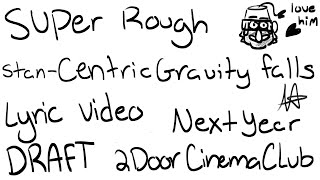 Super Rough
love him
Stan-Centric Gravity falls
Lyric Video
Next Year
DRAFT 2 Door Cinema Club